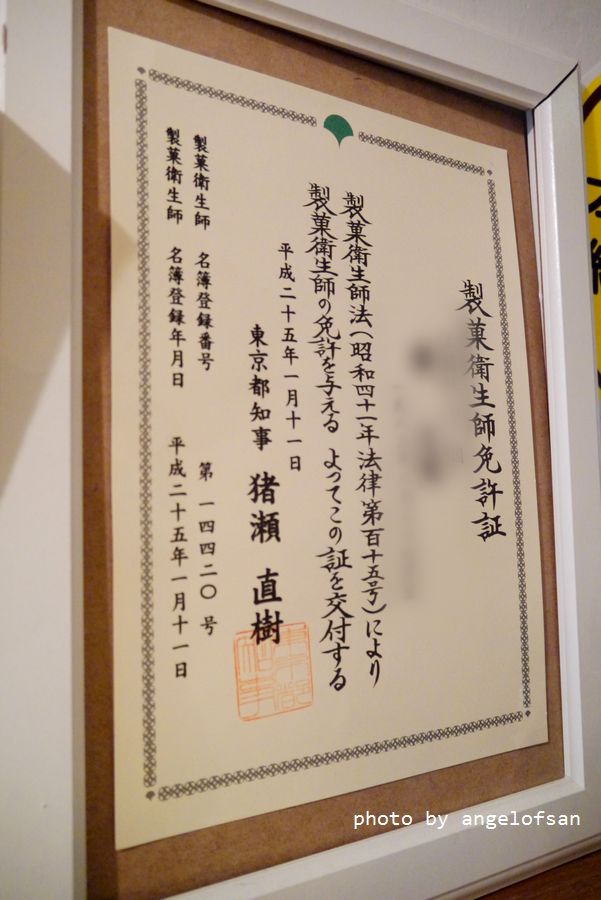 製菓衛生師免許証
製菓衛生師法(昭和四十一年法律第百十五号)により
製菓衛生師の免許を与える よってこの証を交付する
平成二十五年一月十一日
東京都知事 猪瀬 直樹
製菓衛生師 名簿登録番号 第 一四四二〇 号
製菓衛生師 名簿登録年月日 平成二十五年一月十一日
photo by angelofsan